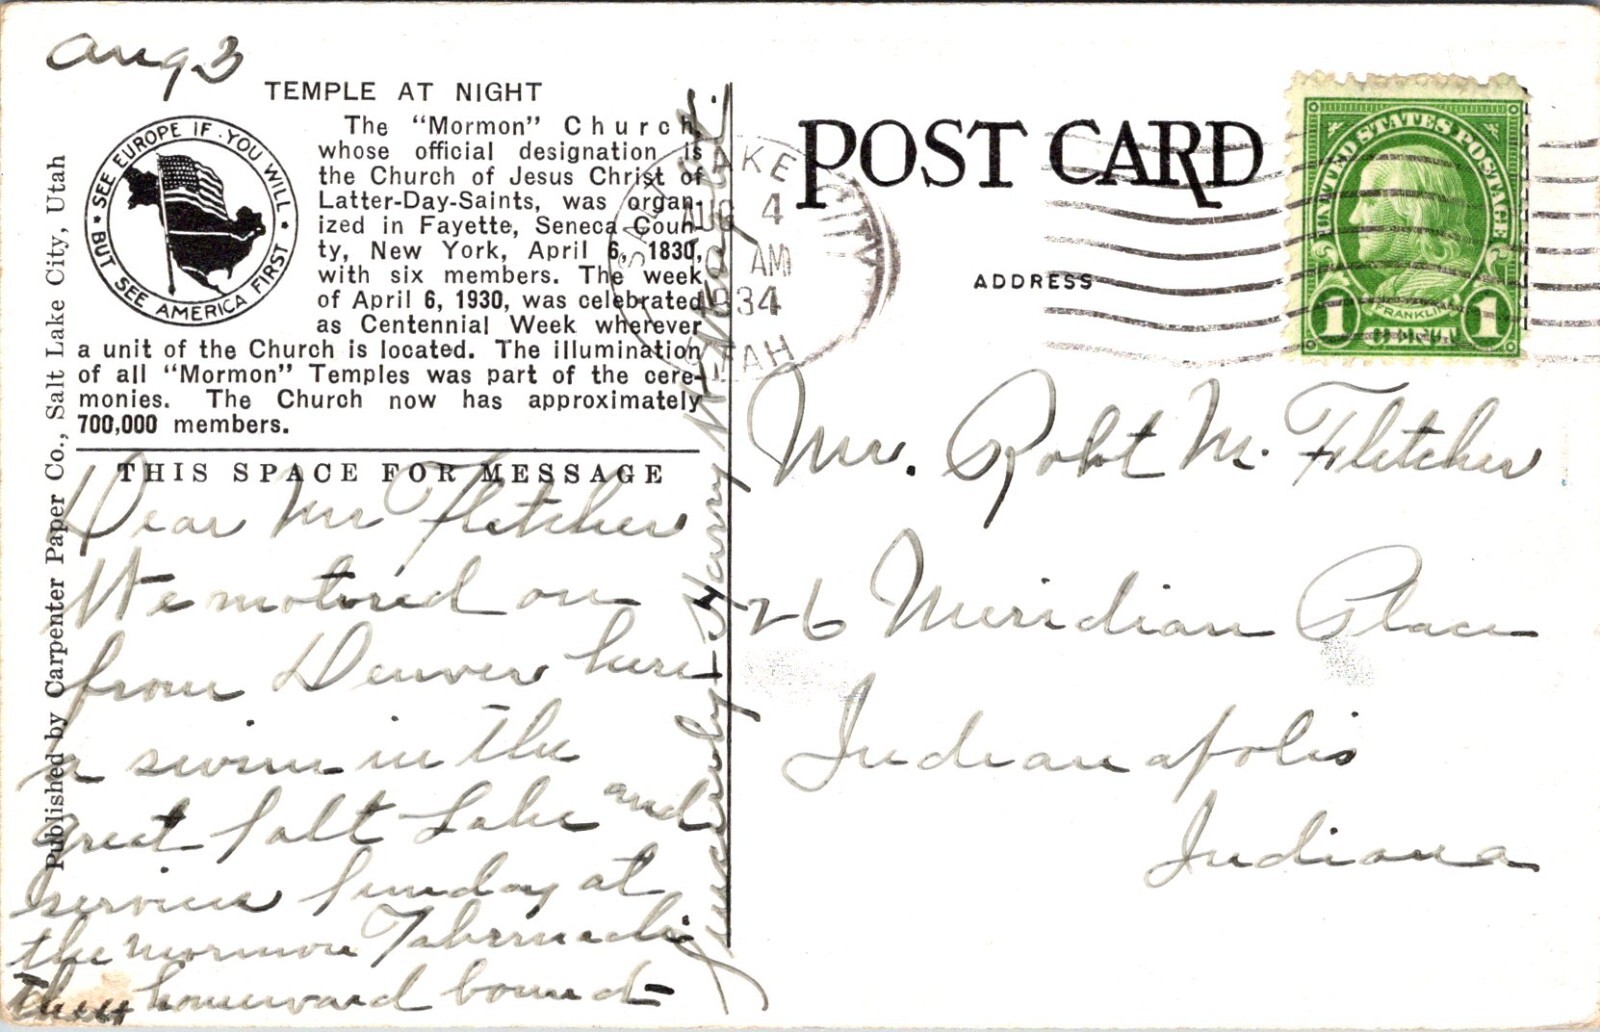 Aug 3
TEMPLE AT NIGHT
SEE EUROPE IF YOU WILL
BUT SEE AMERICA FIRST
The "Mormon" Church,
whose official designation is
the Church of Jesus Christ of
Latter-Day-Saints, was organ-
ized in Fayette, Seneca Coun-
ty, New York, April 6, 1830,
with six members. The week
of April 6, 1930, was celebrated
as Centennial Week wherever
a unit of the Church is located. The illumination
of all "Mormon" Temples was part of the cere-
monies. The Church now has approximately
700,000 members.
Published by Carpenter Paper Co., Salt Lake City, Utah
THIS SPACE FOR MESSAGE
Dear Mr Fletcher
We motored on
from Denver here
a swim in the
Great Salt Lake and
services Sunday at
the Mormon Tabernacle
then homeward bound-
Sincerely - Harry
POST CARD
ADDRESS
SALT LAKE CITY
AUG 4
AM
1934
UTAH
UNITED STATES POSTAGE
FRANKLIN
1 1
Mr. Robt M. Fletcher
26 Meridian Place
Indianapolis
Indiana